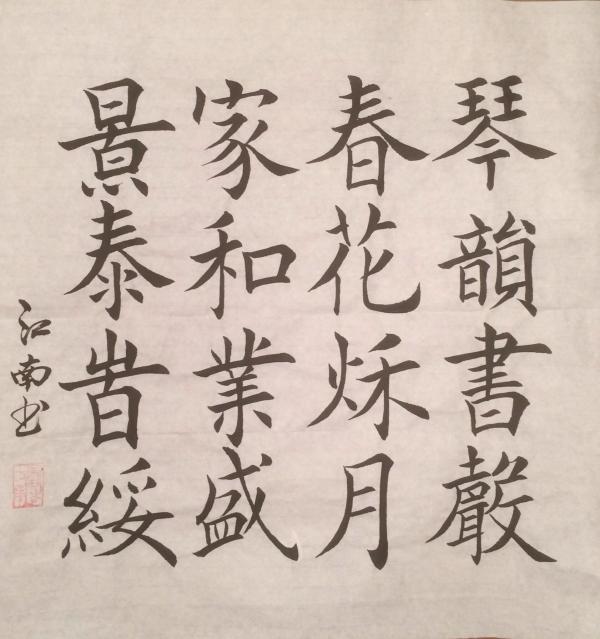 琴韻書聲
春花秌月
家和業盛
景泰旹綏
江南书